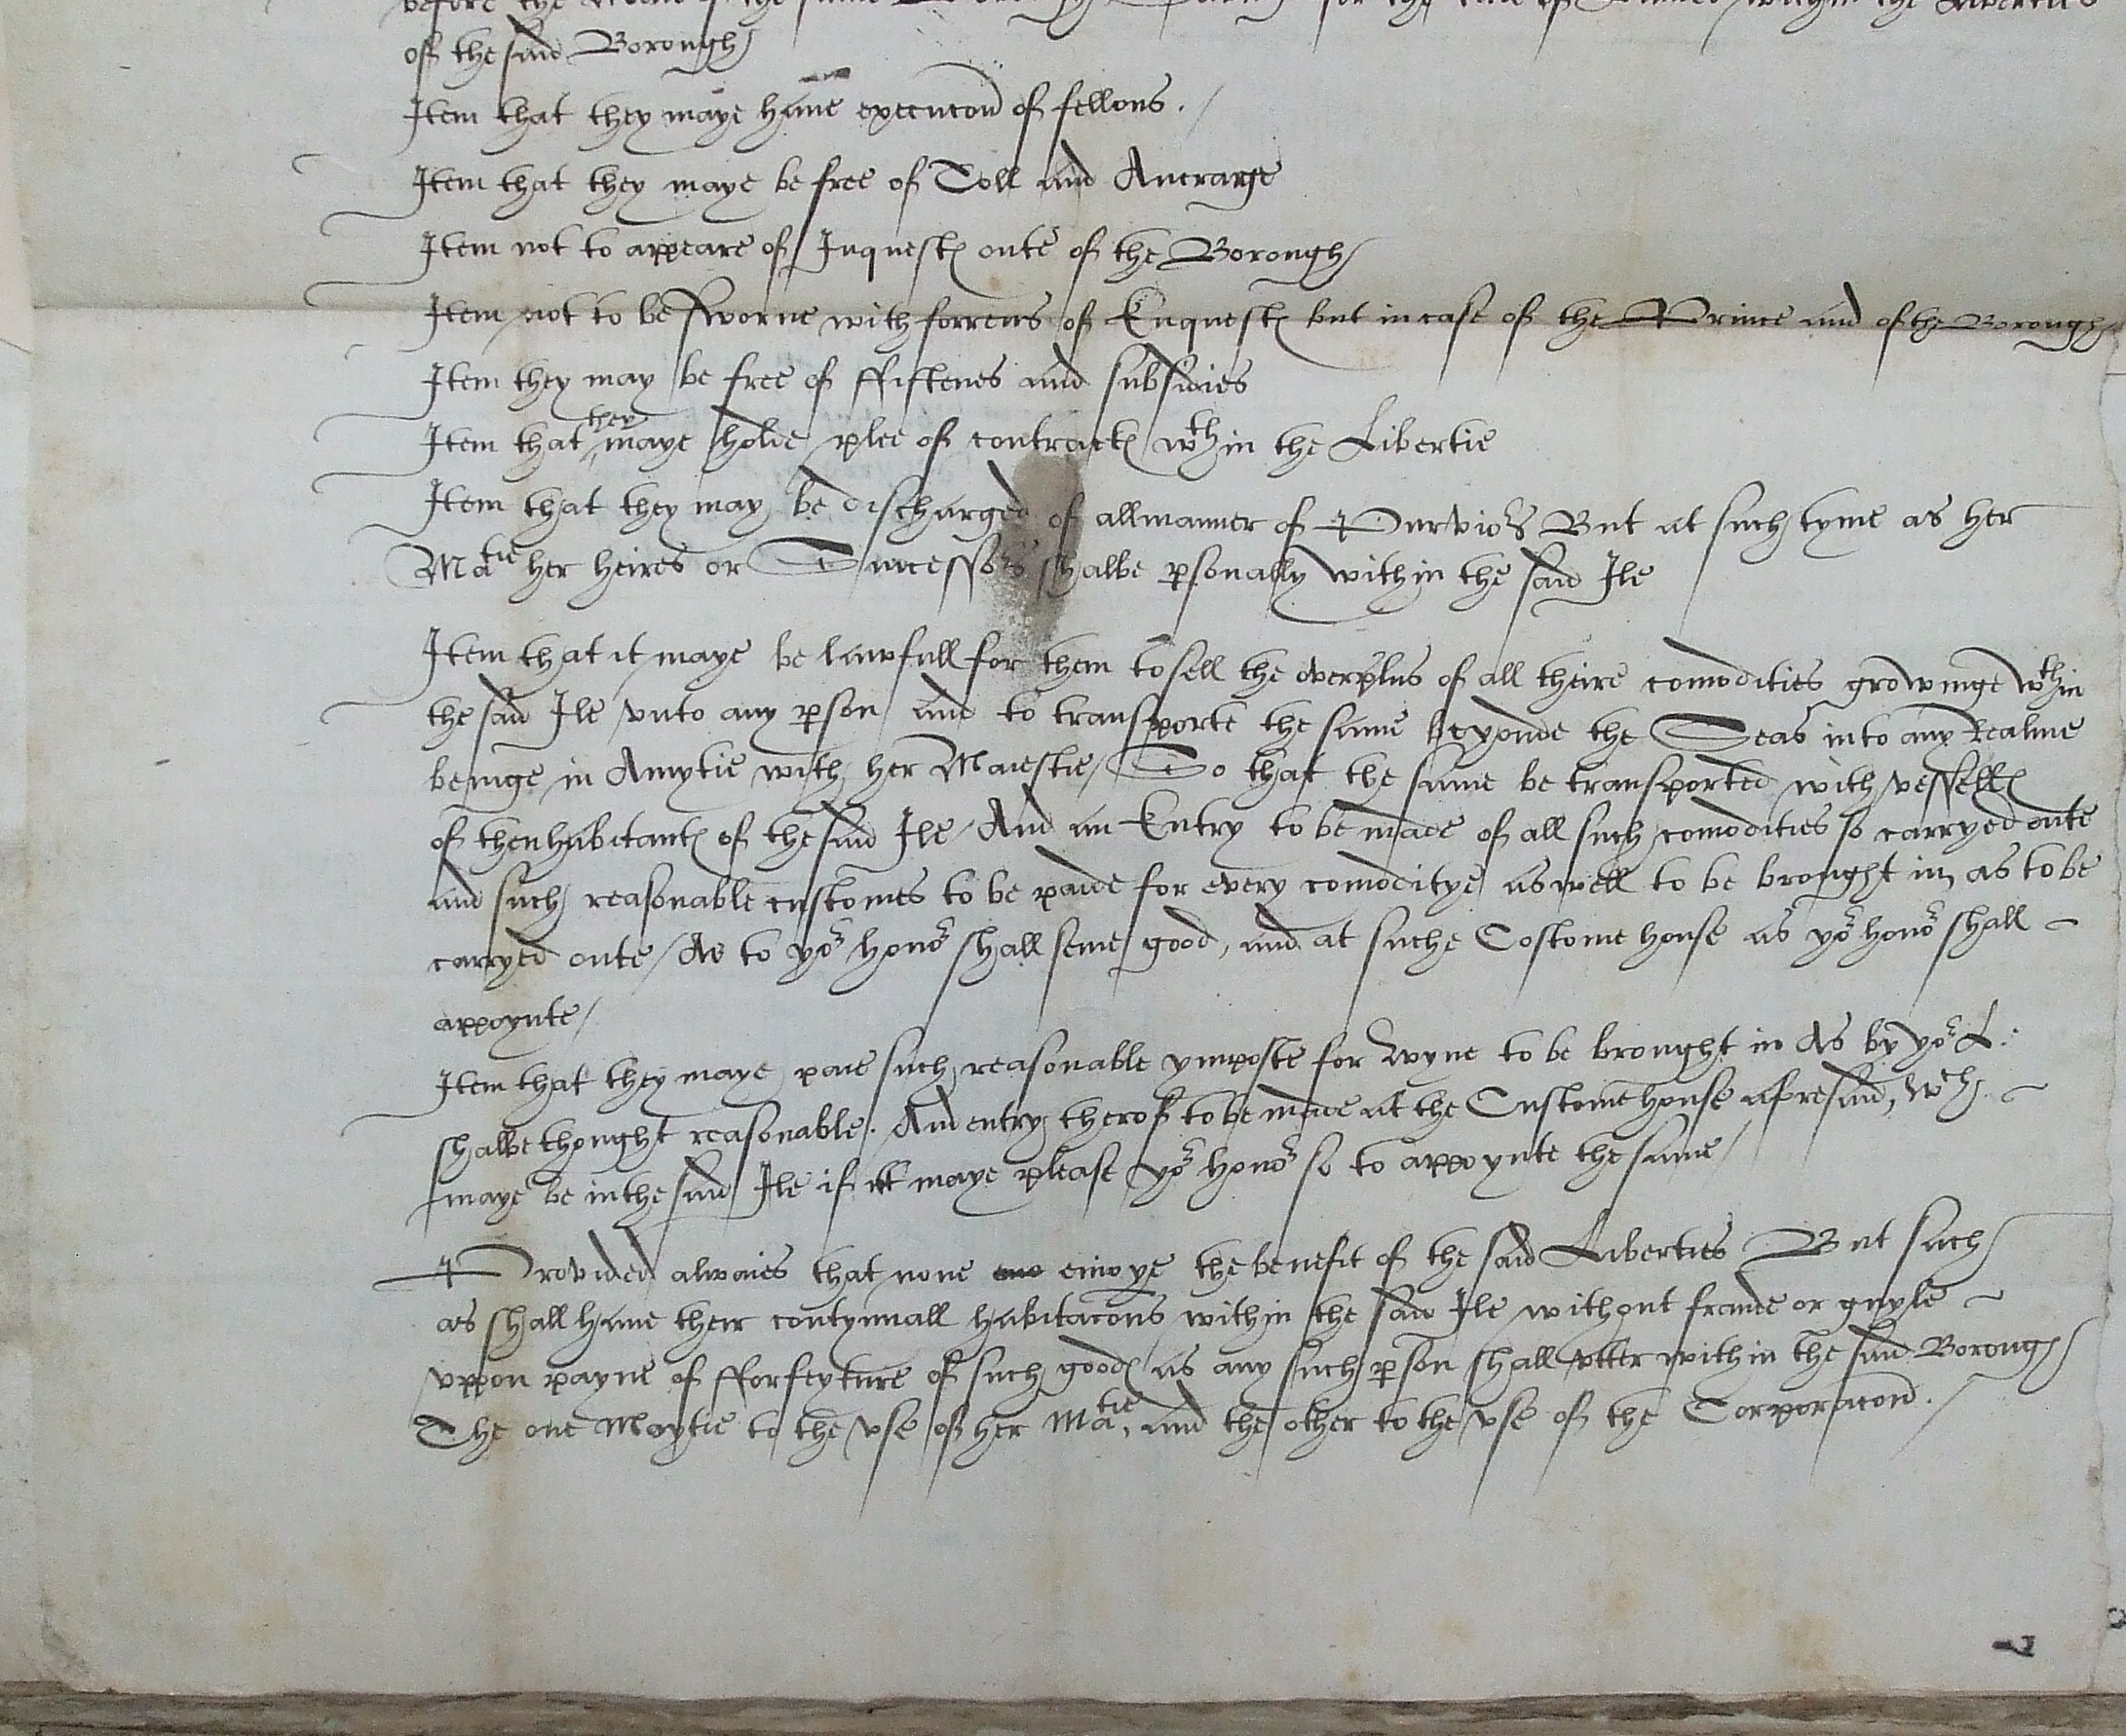 of the said Borough
Item that they maye haue execucon of fellons.
Item that they maye be free of Toll and Ancrage
Item not to appeare of Inquestℯ oute of the Borough
Item not to be sworne with forrens of Enquestℯ but in case of the Prince and of the Borough
Item they may be free of ffiftenes and subsidies
they
Item that maye holde plee of contractℯ wth in the Libertie
Item that they may be discharged of all manner of Purviors But at such tyme as her
Matie her heires or Successors shalbe psonally within the said Ile
Item that it maye be lawfull for them to sell the overplus of all theire comodities growinge wthin
the said Ile vnto any pson and to transporte the same beyonde the Seas into any Realme
beinge in Amytie with her Maiestie So that the same be transported with vessellℯ
of thenhabitantℯ of the said Ile And an Entry to be made of all such comodities so carryed oute
and such reasonable customes to be paide for every comoditye aswell to be brought in, as to be
carryed oute / As to yor honor shall seme good, and at suche Costome house as yor honor shall
appoynte /
Item that they maye paie such reasonable ymposte for wyne to be brought in As by yor L:
shalbe thought reasonable. And entry therof to be made at the Custome house aforesaid, wch
maye be in the said Ile if it maye please yor honor so to appoynte the same /
Provided alwaies that none enioye the benefit of the said Liberties But such
as shall haue their contynuall habitacons within the said Ile without fraude or guyle
vppon payne of fforfeyture of such goodℯ as any such pson shall vtter within the said Borough
The one Moytie to the vse of her Matie, and the other to the vse of the Corporacon.